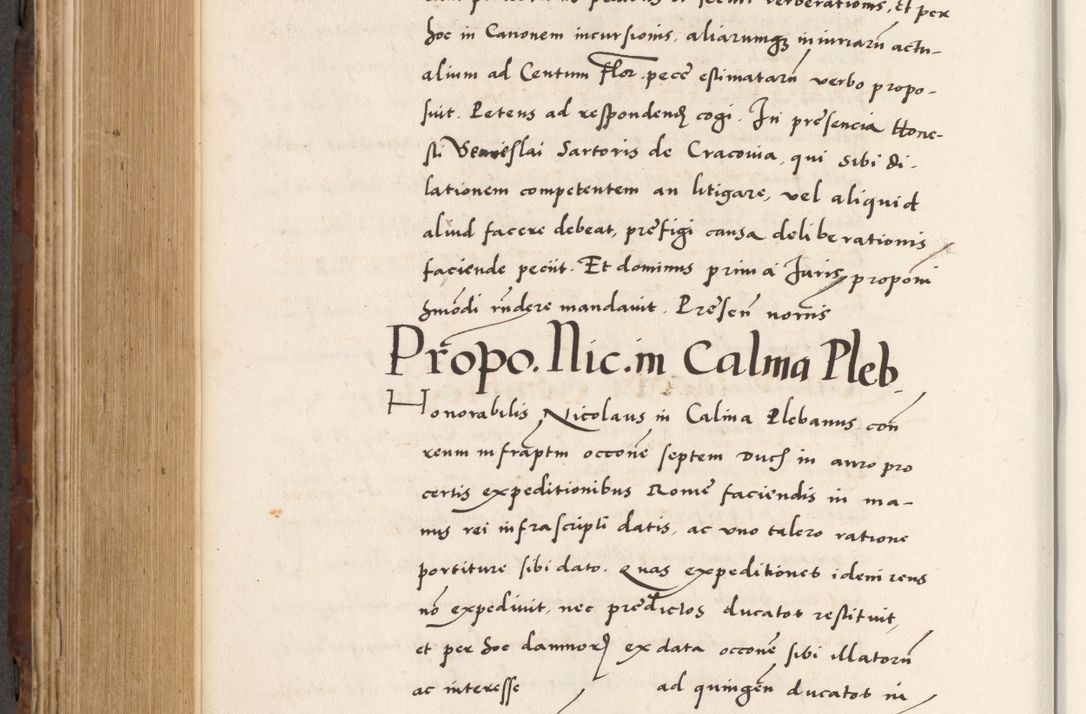 verberationis, et per
hoc in Canonem incursionis, aliarumqꝫ iniuriarū actu-
alium ad Centum Flor. pecē estimatarū verbo propo-
suit. Petens ad respondendꝫ cogi. In presencia Hone-
sti Sartoris de Cracovia, qui sibi di-
lationem competentem an litigare, vel aliquid
aliud facere debeat, prefigi causa deliberationis
faciende peciit. Et dominus primā Juris proponi
hmōdi rn̄dere mandavit. Presen̄ nor̄nis
Propo. Nic. in Calma Pleb.
Honorabilis Nicolaus in Calma Plebanus con̄
reum infrāptm occōne septem Duc̄ in auro pro
certis expeditionibus Rome faciendis in ma-
nus rei infrascripti datis, ac uno talero ratione
portiture sibi dato. Quas expeditiones idem reus
nō expedivit, nec predictos ducatos restituit,
et per hoc damnorꝫ ex data occōne sibi illatorū
ac interesse ad quingen̄ ducatos in